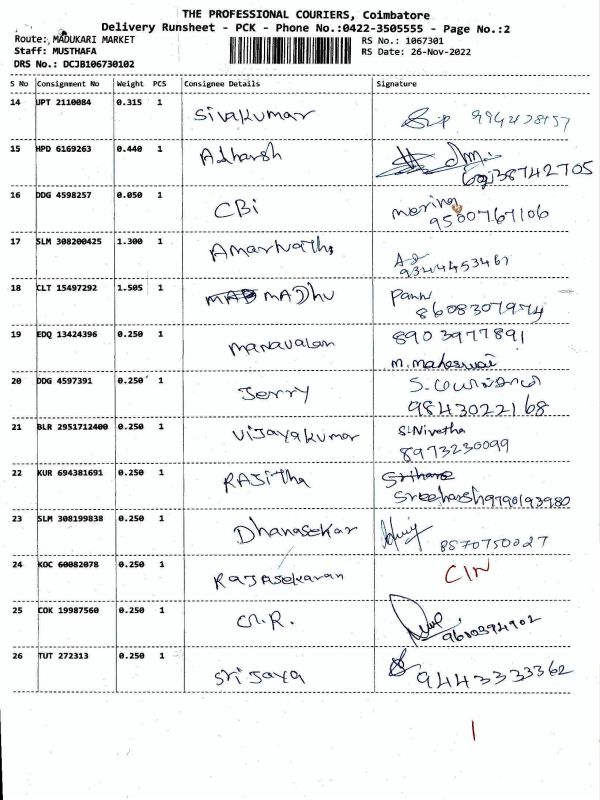 THE PROFESSIONAL COURIERS, Coimbatore
Delivery Runsheet - PCK - Phone No.:0422-3505555 - Page No.:2
Route: MADUKARI MARKET
RS No.: 1067301
Staff: MUSTHAFA
RS Date: 26-Nov-2022
DRS No.: DCJB106730102
S No Consignment No Weight PCS Consignee Details Signature
14 UPT 2110084 0.315 1 Sivakumar
15 HPD 6169263 0.440 1 Adharsh
16 DDG 4598257 0.050 1 CBi
9500767106
17 SLM 308200425 1.300 1 Amarnath
9344453461
18 CLT 15497292 1.505 1 MADhu
8608307974
19 EDQ 13424396 0.250 1 Manavalan 8903977891
M. maheswari
20 DDG 4597391 0.250 1 Jerry
9843022168
21 BLR 2951712400 0.250 1 Vijayakumar S.Nivetha
8973230099
22 KUR 694381691 0.250 1 RAJitha
Sreeharsh 9790193980
23 SLM 308199838 0.250 1 Dhanasekar
8870750027
24 KOC 60082078 0.250 1 Rajasekaran
25 COK 19987560 0.250 1
26 TUT 272313 0.250 1 Sri Jaya 9443333362